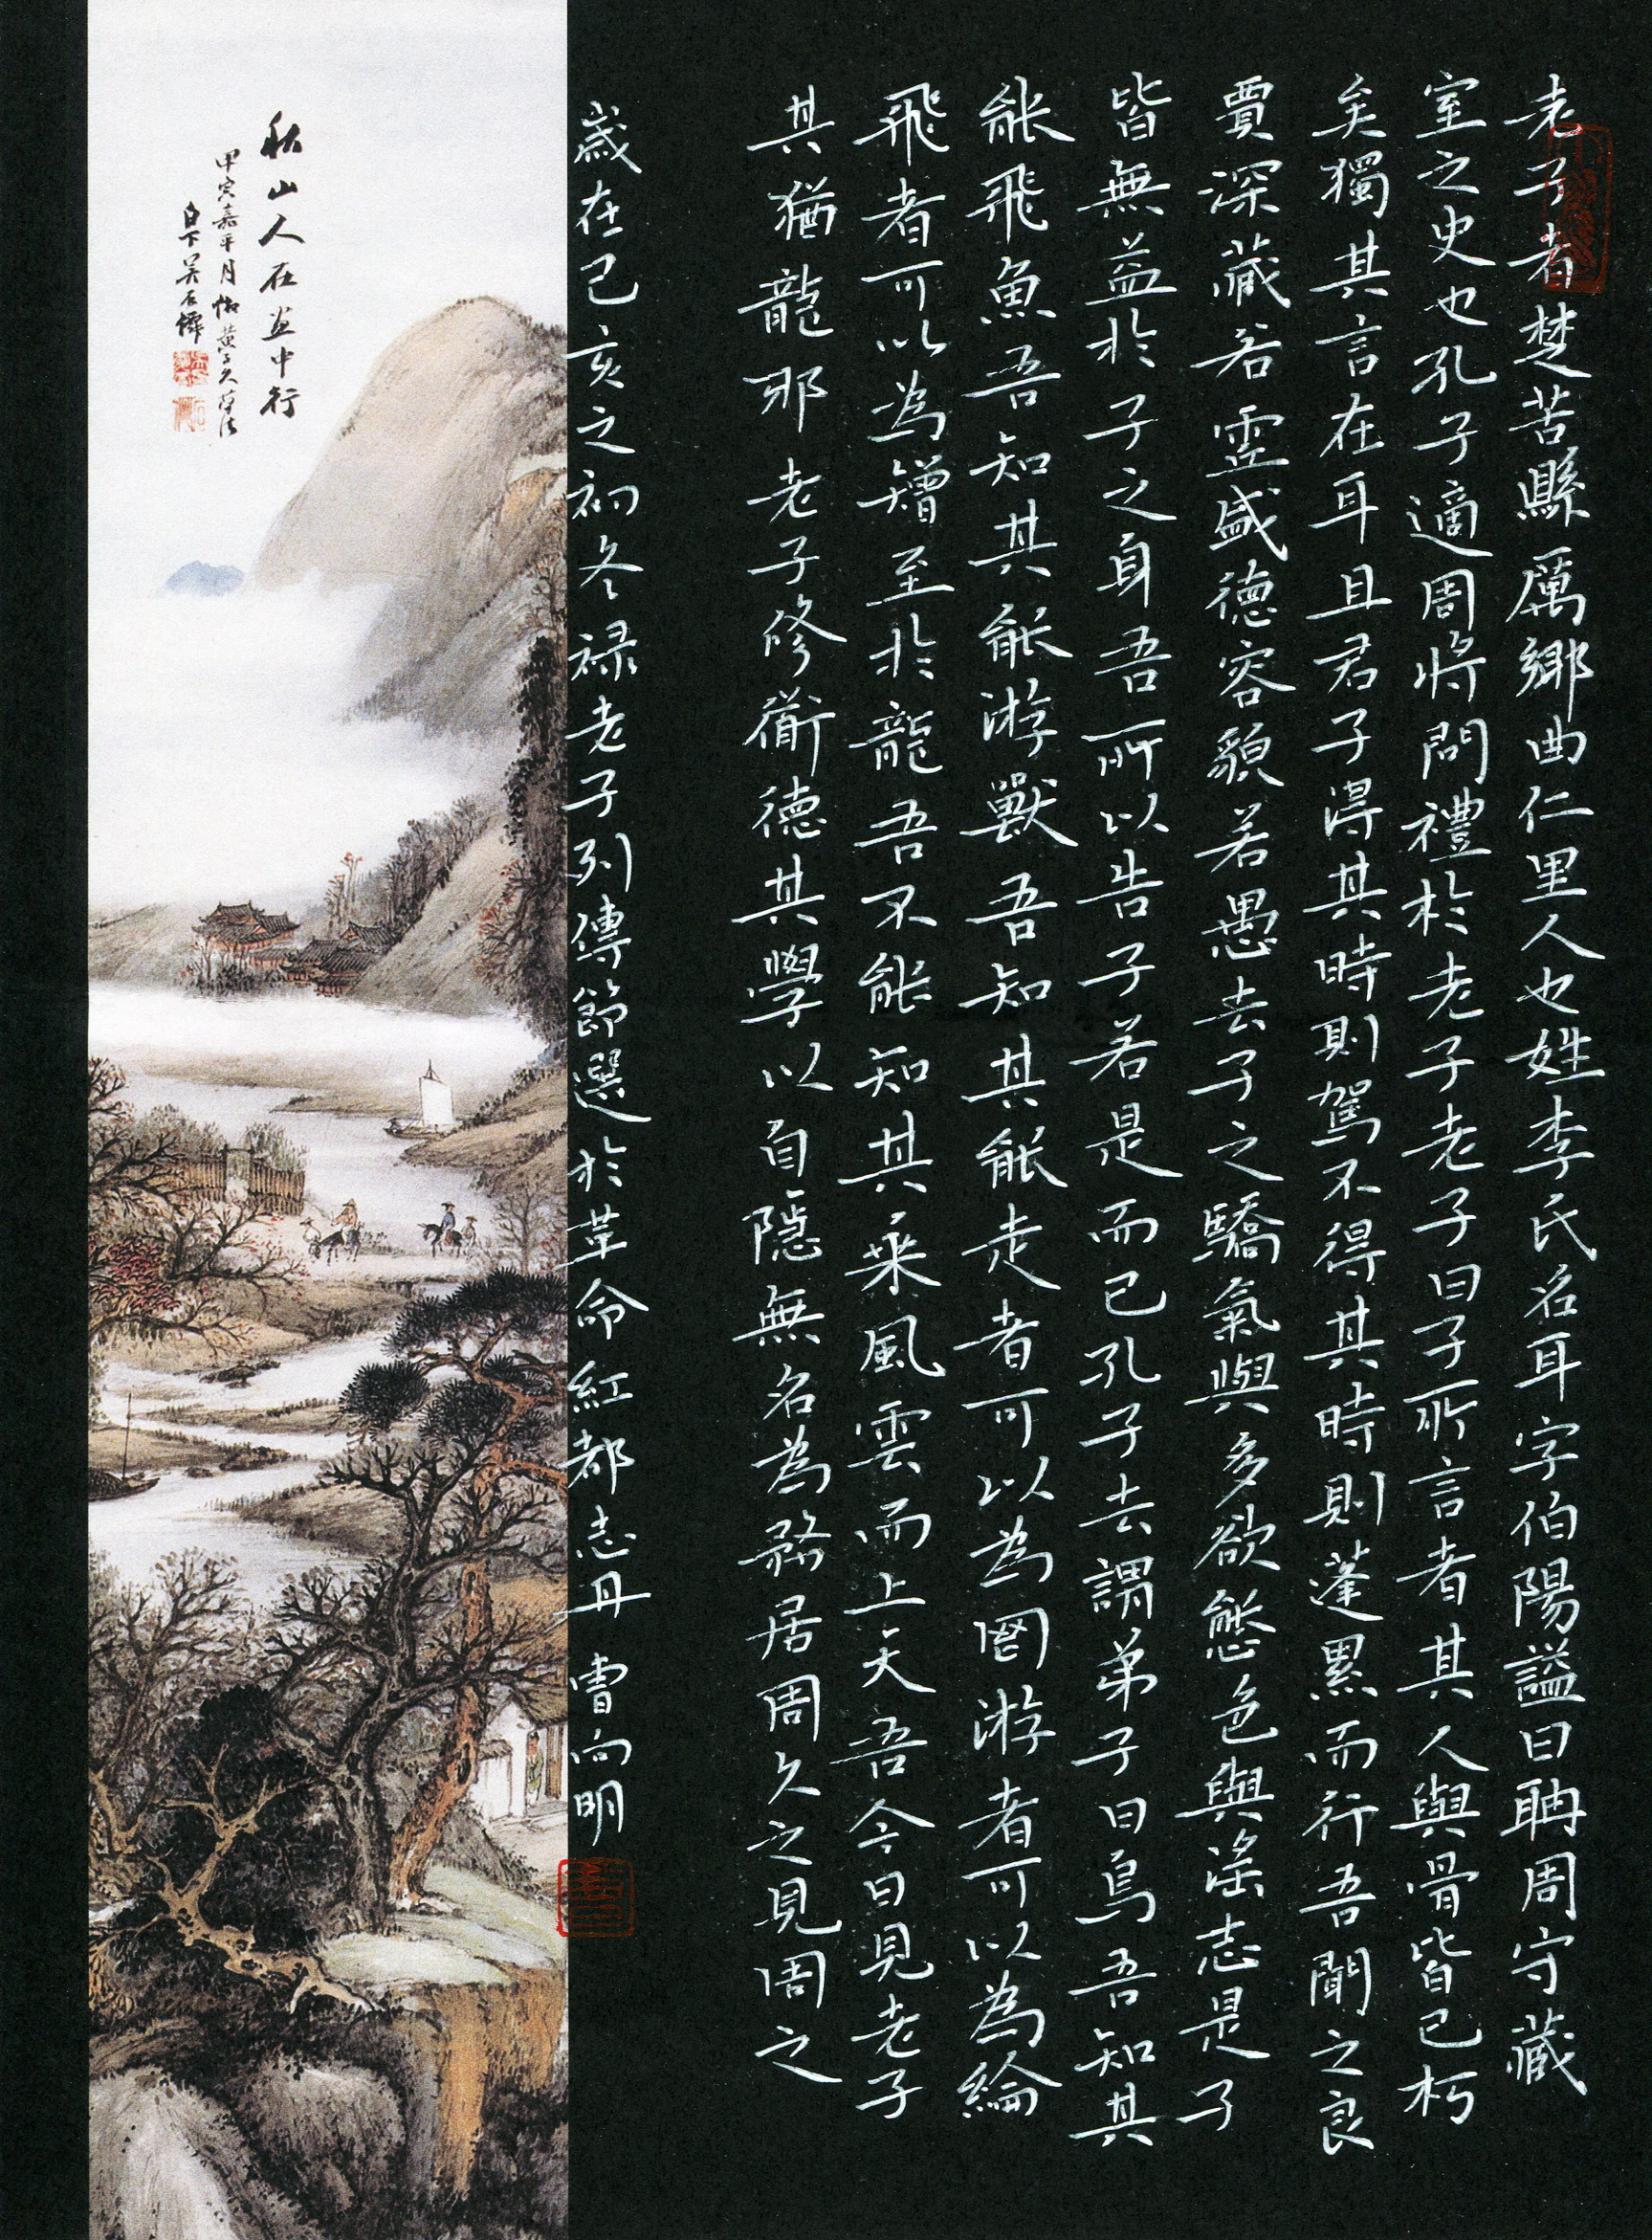 老子者楚苦縣厲鄉曲仁里人也姓李氏名耳字伯陽謚曰聃周守藏
室之史也孔子適周將問禮於老子老子曰子所言者其人與骨皆已朽
矣獨其言在耳且君子得其時則駕不得其時則蓬累而行吾聞之良
賈深藏若虛盛德容貌若愚去子之驕氣與多欲態色與淫志是子
皆無益於子之身吾所以告子若是而已孔子去謂弟子曰鳥吾知其
能飛魚吾知其能游獸吾知其能走者可以為罔游者可以為綸
飛者可以為矰至於龍吾不能知其乘風雲而上天吾今日見老子
其猶龍邪老子修衟德其學以自隱無名為務居周久之見周之
歲在己亥之初冬禄老子列傳節選於革命紅都志丹 曹向明
秋山人在畫中行
甲寅嘉平月倣黃子久筆法
白下吴石僊